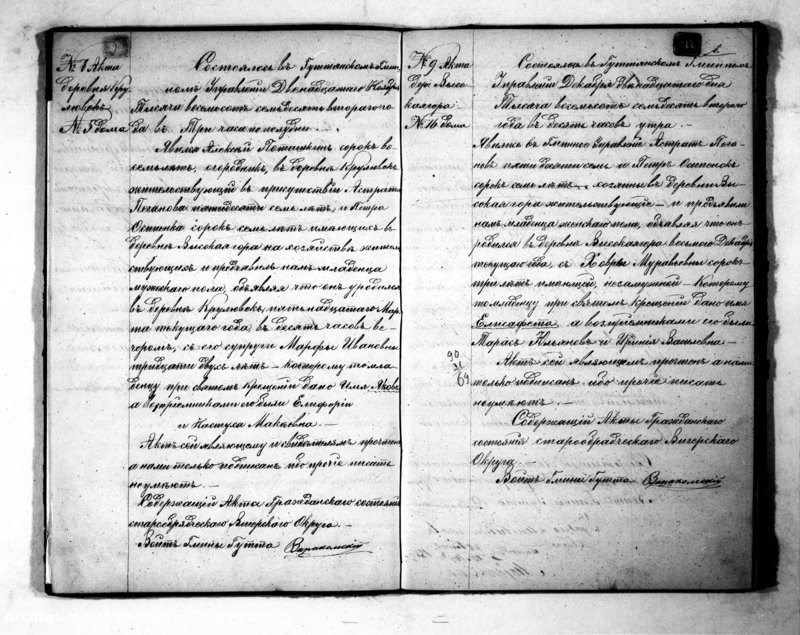 № 8 Акта
деревня Кру
ловокъ
№ 5 дома
Состоялось въ Гуттанскомъ Гмин
номъ Управленіи Двенадцатаго Ноября
Тысяча восемьсотъ семьдесятъ втораго го
да въ Три часа по полудни. —
Явился Алексій сорокъ во
семь лѣтъ, огородникъ, въ деревнѣ Круловокъ
жительствующій въ присутствіи Астрата
Поганова пятидесяти семь лѣтъ, и Петра
Осипенка сорокъ семь лѣтъ имѣющихъ въ
деревнѣ Высокая гора на хозяйствѣ жител
ствующихъ и предъявилъ намъ младенца
мужескаго пола, объявляя что онъ уродился
въ деревнѣ Круловокъ, пятьнадцатаго Мар
та текущаго года, въ десять часовъ ве-
черомъ, съ его супруги Марфы Ивановны
тридцати двухъ лѣтъ — которому то мла
денцу при святомъ крещеніи дано Имя Яковъ
а воспріемниками его были
и Настуса Макѣевна. —
Актъ сей являющему и свидѣтелямъ прочитан
а нами только подписанъ ибо прочіе писать
неумѣютъ —
Содержащій Акта Гражданскаго состоянія
старообрядческаго Вигерскаго Округа —
Войтъ Гмины Гутта
№ 9 Акта
дер: Высо
кая гора
№ 16 дома
Состоялось въ Гуттанскомъ Гминномъ
Управленіи Декабря двенадцатаго дня
Тысяча восемьсотъ семьдесятъ втораго
года въ десять часовъ утра. —
Явились въ Гминное Управленіе Астратъ Пога-
новъ пятидесяти семи и Петръ Осипенокъ
сорокъ семь лѣтъ, хозяины въ деревнѣ Вы-
сокая гора жительствующіе — и предъявили
намъ младенца женскаго пола, объявляя что онъ
родился въ деревнѣ Высокая гора восьмаго Декабря
текущаго года, съ Ховры Муравьевны сорокъ
три лѣтъ имѣющей, незамужней — Которому
то младенцу при святомъ крещеніи дано имя
Елисафета, а воспріемниками его были
Тарасъ Ильяновъ и Ириния Василевна —
90
31
69
Актъ сей являющемъ прочтенъ а нами
только подписанъ ибо прочіе писать
неумѣютъ. —
Содержащій Акты Гражданскаго
состоянія старообрядческаго Вигерскаго
Округа
Войтъ Гмины Гутта